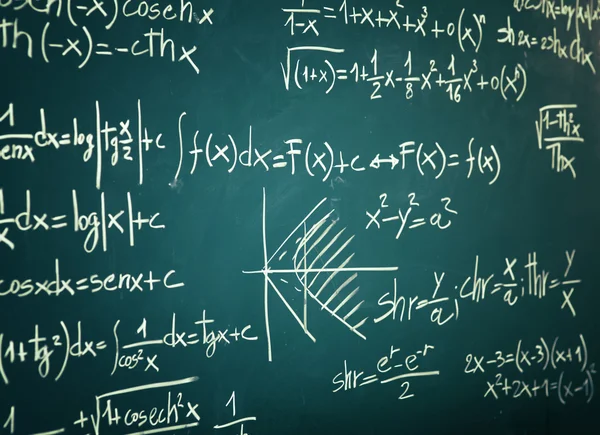 (-x)cosech x
th(-x)=-cthx
1/(1-x)=1+x+x²+x³+o(x)ⁿ
sh2x=2shx chx
√(1+x)=1+1/2x-1/8x²+1/16x³+o(x³)
1/senx dx=log|tg x/2|+c
∫f(x)dx=F(x)+c↔F(x)=f(x)
√(1-th²x)/Thx
1/x dx=log|x|+c
x²-y²=a²
cosxdx=senx+c
shr=y/a; chr=x/a; thr=y/x
(1+tg²)dx=∫1/cos²x dx=tgx+c
shr=(eʳ-e⁻ʳ)/2
2x-3=(x-3)(x+1)
x²+2x+1=(x-1)²
+√(1+cosech²x)